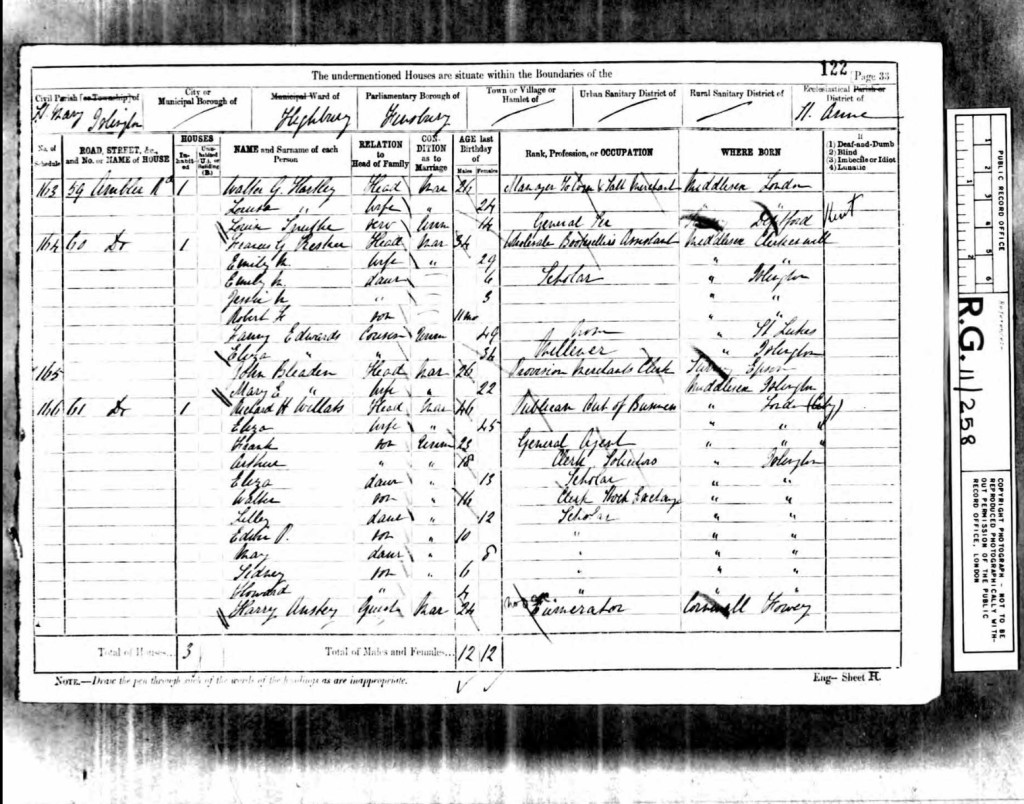 The undermentioned Houses are situate within the Boundaries of the
122
Page 33
Civil Parish [or Township] of
City or Municipal Borough of
Municipal Ward of
Parliamentary Borough of
Town or Village or Hamlet of
Urban Sanitary District of
Rural Sanitary District of
Ecclesiastical Parish or District of
St Mary Islington
Highbury
Finsbury
St. Anne
No. of Schedule
ROAD, STREET, &c., and No. or NAME of HOUSE
HOUSES
Inhabited
Uninhabited (U.), or Building (B.)
NAME and Surname of each Person
RELATION to Head of Family
CONDITION as to Marriage
AGE last Birthday of
Males
Females
Rank, Profession, or OCCUPATION
WHERE BORN
If
(1) Deaf-and-Dumb
(2) Blind
(3) Imbecile or Idiot
(4) Lunatic
163 59 Ambler Rd 1 Walter G. Head Mar 26 Manager to Corn & Merchant Middlesex London
Louisa " Wife " 24 " "
Louisa Serv Unm 14 General Ser Deptford Kent
164 60 Do 1 Francis G. Head Mar 34 Wholesale Booksellers Assistant Middlesex Clerkenwell
Emily Wife " 29 " "
Emily daur 6 Scholar " Islington
Jessie " 3 " "
Robert son 11 mo " "
Fanny Edwards Cousin Unm 49 " St Lukes
Eliza " " 34 Milliner " Islington
165 John Bleaden Head Mar 26 Provision Merchants Clerk Surrey
Mary E " Wife " 22 Middlesex Islington
166 61 Do 1 Richard H Willats Head Mar 46 Publican Out of Business " London (City)
Eliza Wife " 45 " " "
Frank son Unm 23 General Agent " " "
Arthur " " 18 Clerk Solicitors " Islington
Eliza daur " 13 Scholar " "
Walter son " 16 Clerk Stock Exchange " "
Lilley daur " 12 Scholar " "
Edwin P. son " 10 " " "
May daur " 8 " " "
Sidney son " 6 " " "
Howard " 4 " " "
Harry Anstey Mar 24 Enumerator Cornwall Fowey
Total of Houses... 3
Total of Males and Females... 12 12
NOTE.—Draw the pen through such of the words of the headings as are inappropriate.
Eng— Sheet H.
PUBLIC RECORD OFFICE
1
2
3
4
5
6
Reference:-
R.G. 11/258
COPYRIGHT PHOTOGRAPH - NOT TO BE REPRODUCED PHOTOGRAPHICALLY WITHOUT PERMISSION OF THE PUBLIC RECORD OFFICE, LONDON